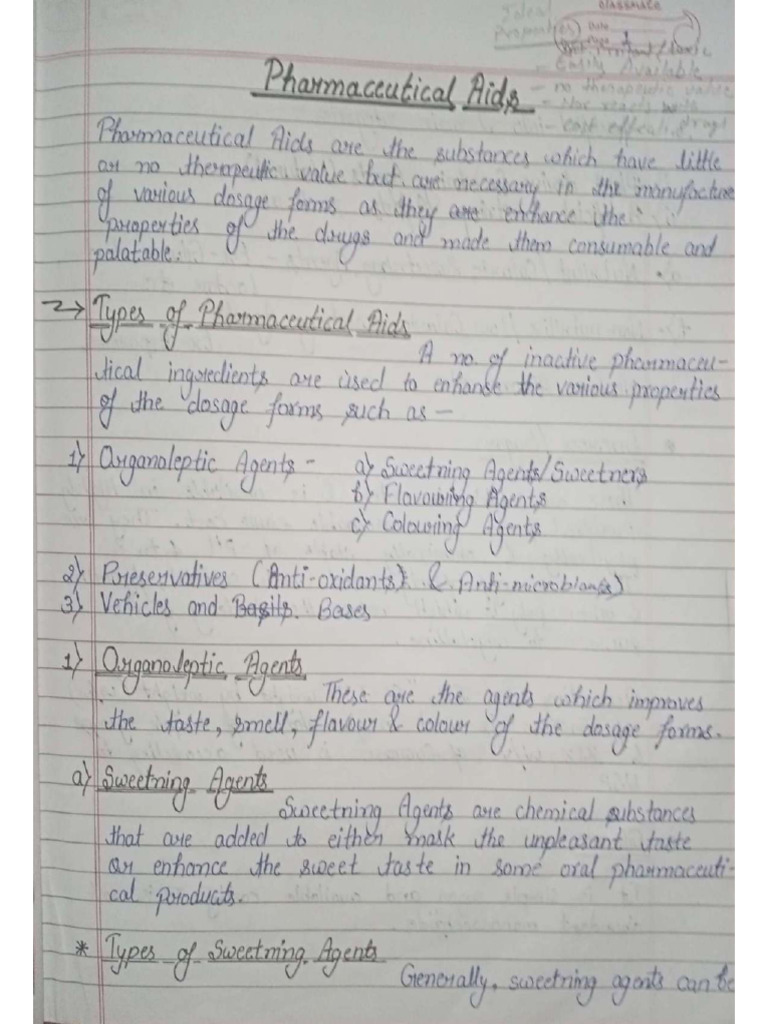 Ideal
classmate
Properties
Date
Page
- Easily Available
- no therapeutic value
- Not reacts with
- cost effecti drug
Pharmaceutical Aids
Pharmaceutical Aids are the substances which have little
or no therapeutic value but are necessary in the manufacture
of various dosage forms as they are enhance the
properties of the drugs and made them consumable and
palatable.
Types of Pharmaceutical Aids
A no. of inactive pharmaceu-
tical ingredients are used to enhanse the various properties
of the dosage forms such as –
1) Organoleptic Agents - a) Sweetning Agents/Sweetners
b) Flavouring Agents
c) Colouring Agents
2) Preservatives (Anti-oxidants) & Anti-microbians)
3) Vehicles and Bases
1) Organoleptic Agents
These are the agents which improves
the taste, smell, flavour & colour of the dosage forms.
a) Sweetning Agents
Sweetning Agents are chemical substances
that are added to either mask the unpleasant taste
or enhance the sweet taste in some oral pharmaceuti-
cal products.
* Types of Sweetning Agents
Generally, sweetning agents can be